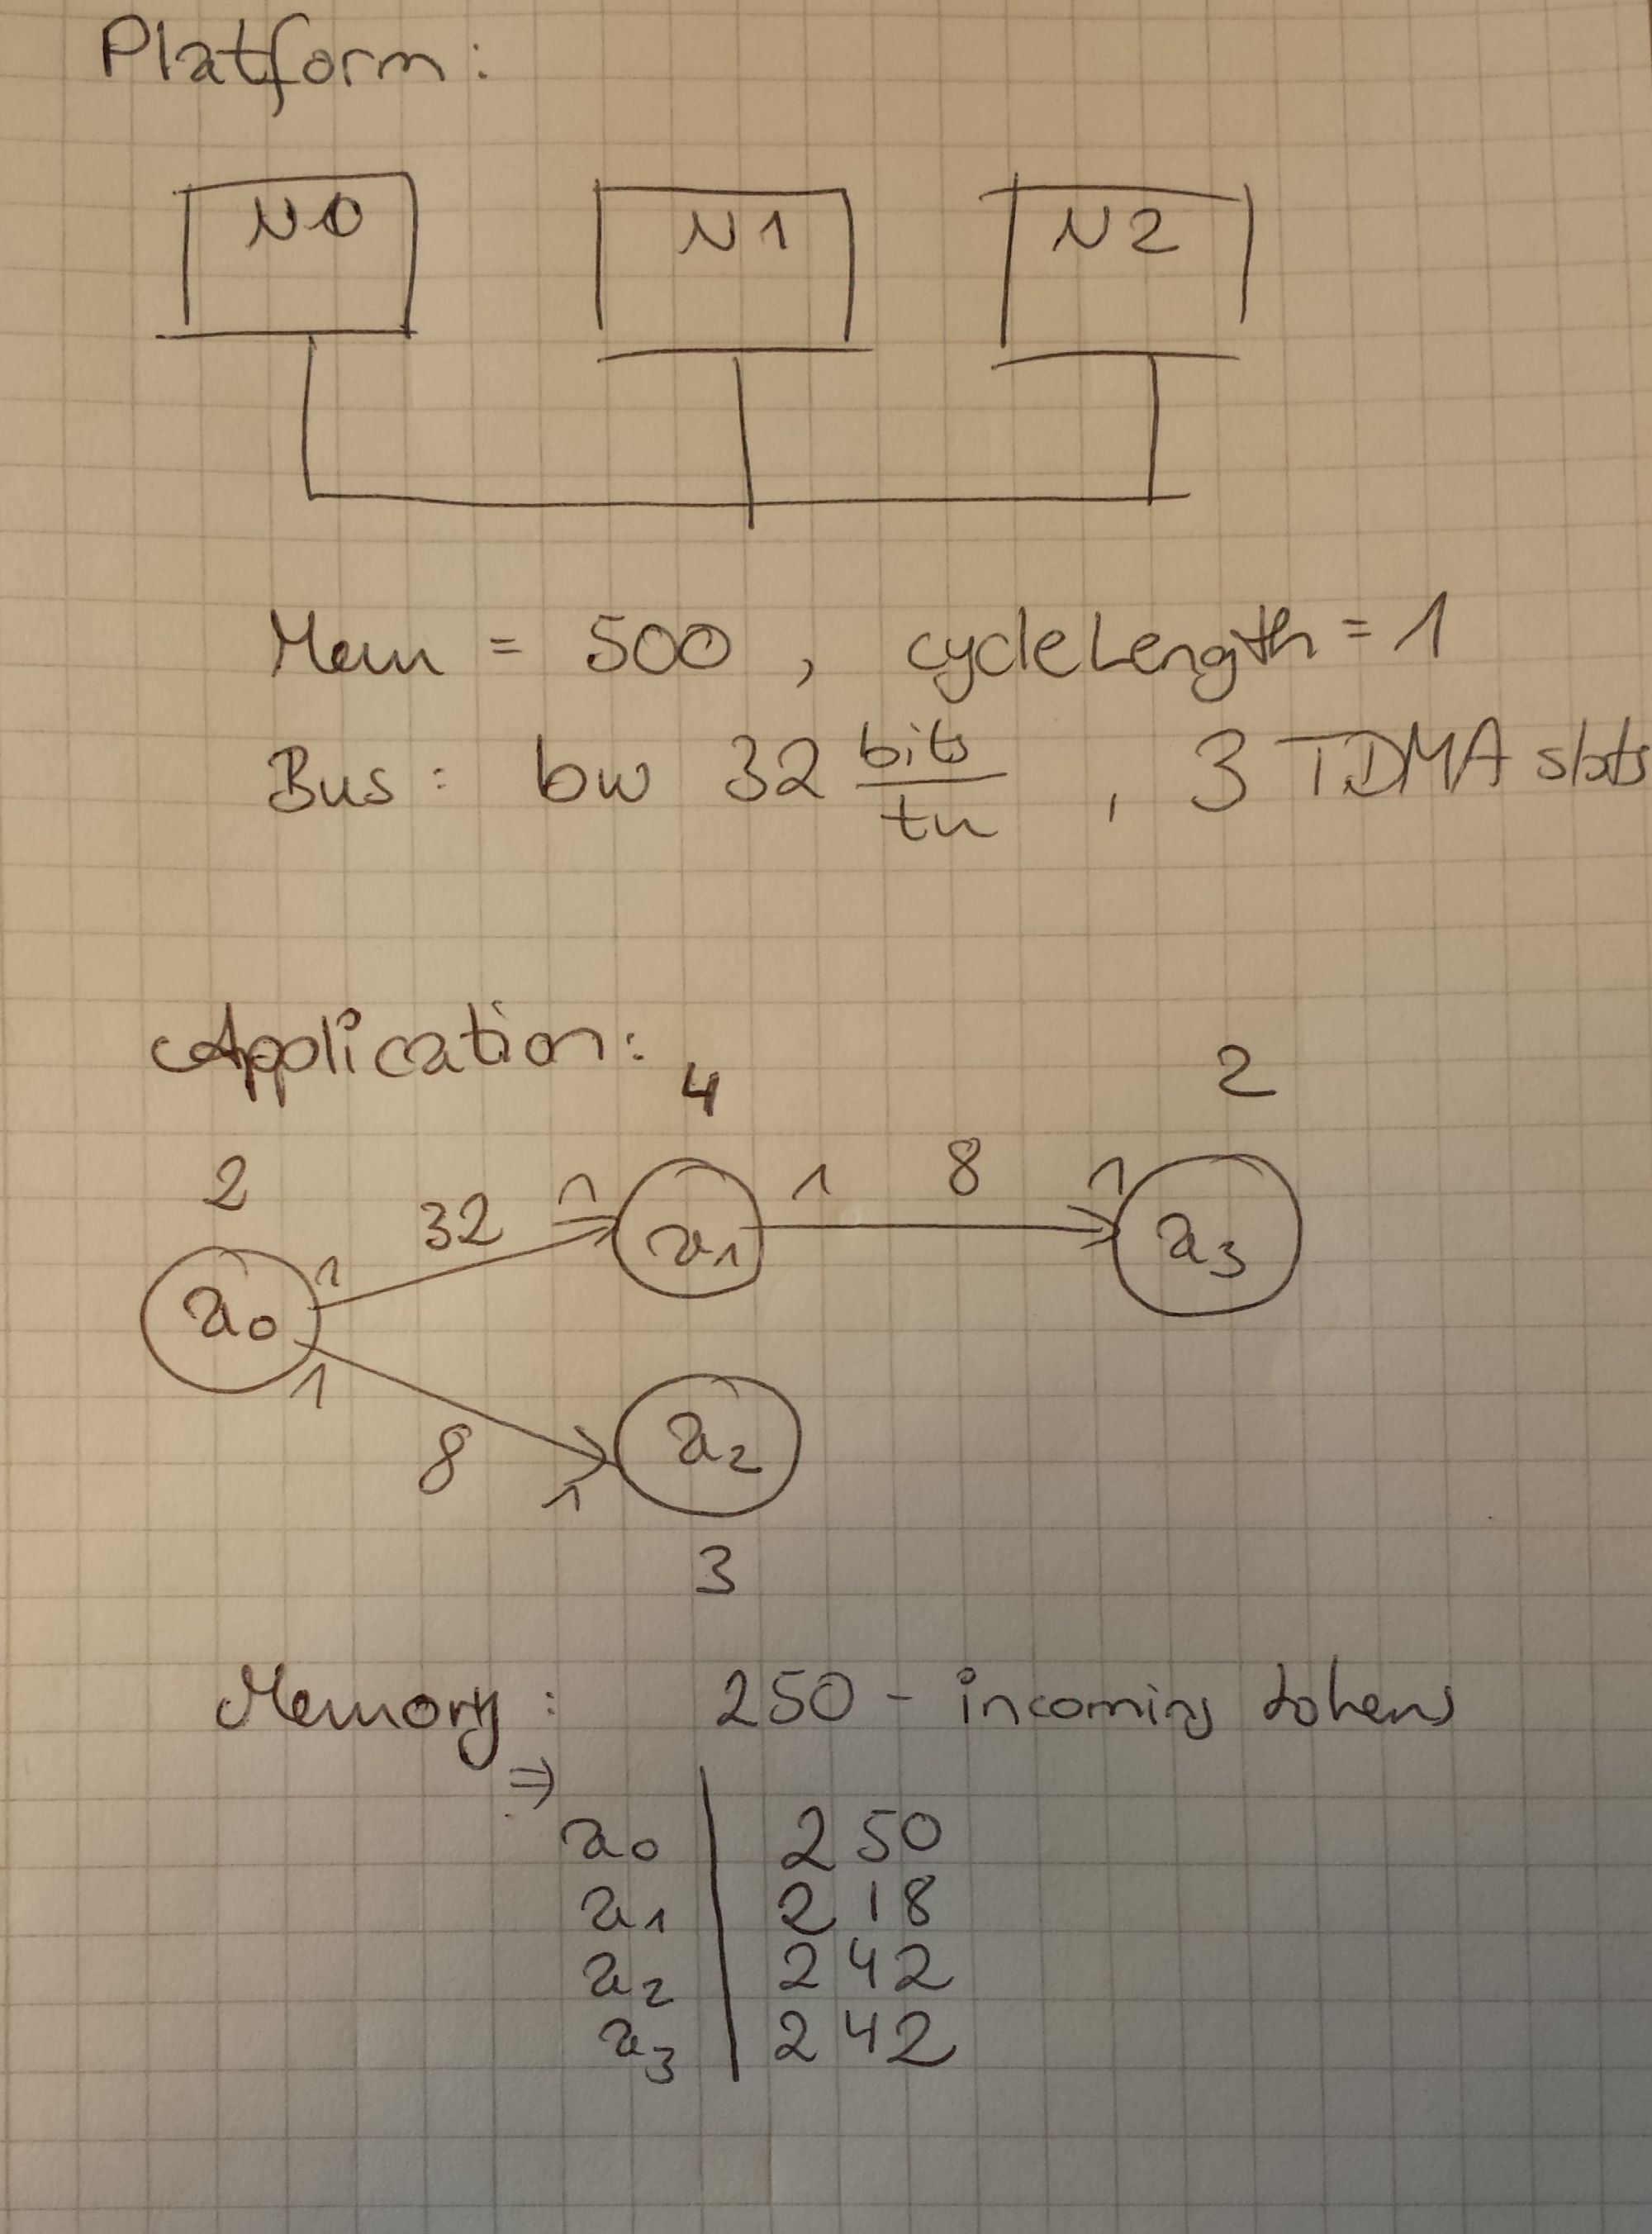 Platform:
N0 N1 N2
Mem = 500 , cycleLength = 1
Bus: bw 32 bits/tu , 3 TDMA slots
Application:
4 2
2 32 1 1 8 1
a0 1 a1 a3
1
8 a2
1
3
Memory: 250 - incoming tokens
⇒
a0 | 250
a1 | 218
a2 | 242
a3 | 242